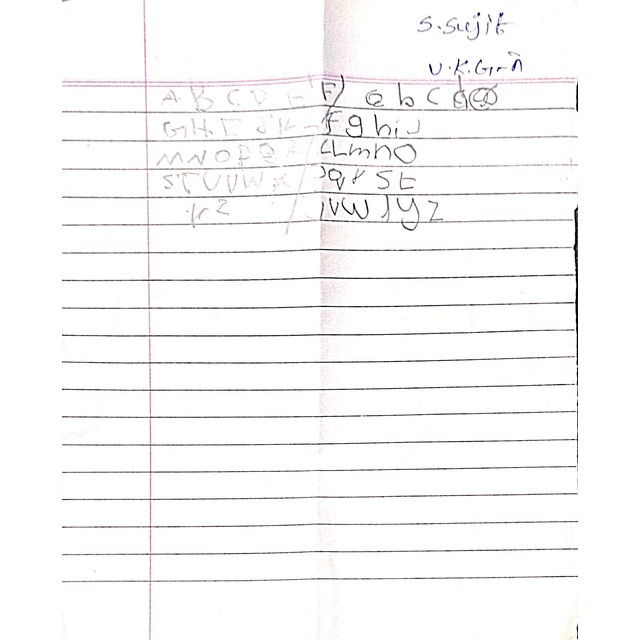 S. Sujit
U.K.G-A
A B C D E F / a b c d e
G H I J K / f g h i j
M N O P Q / L m n O
S T U V W X / q r S t
Y Z / v W y z